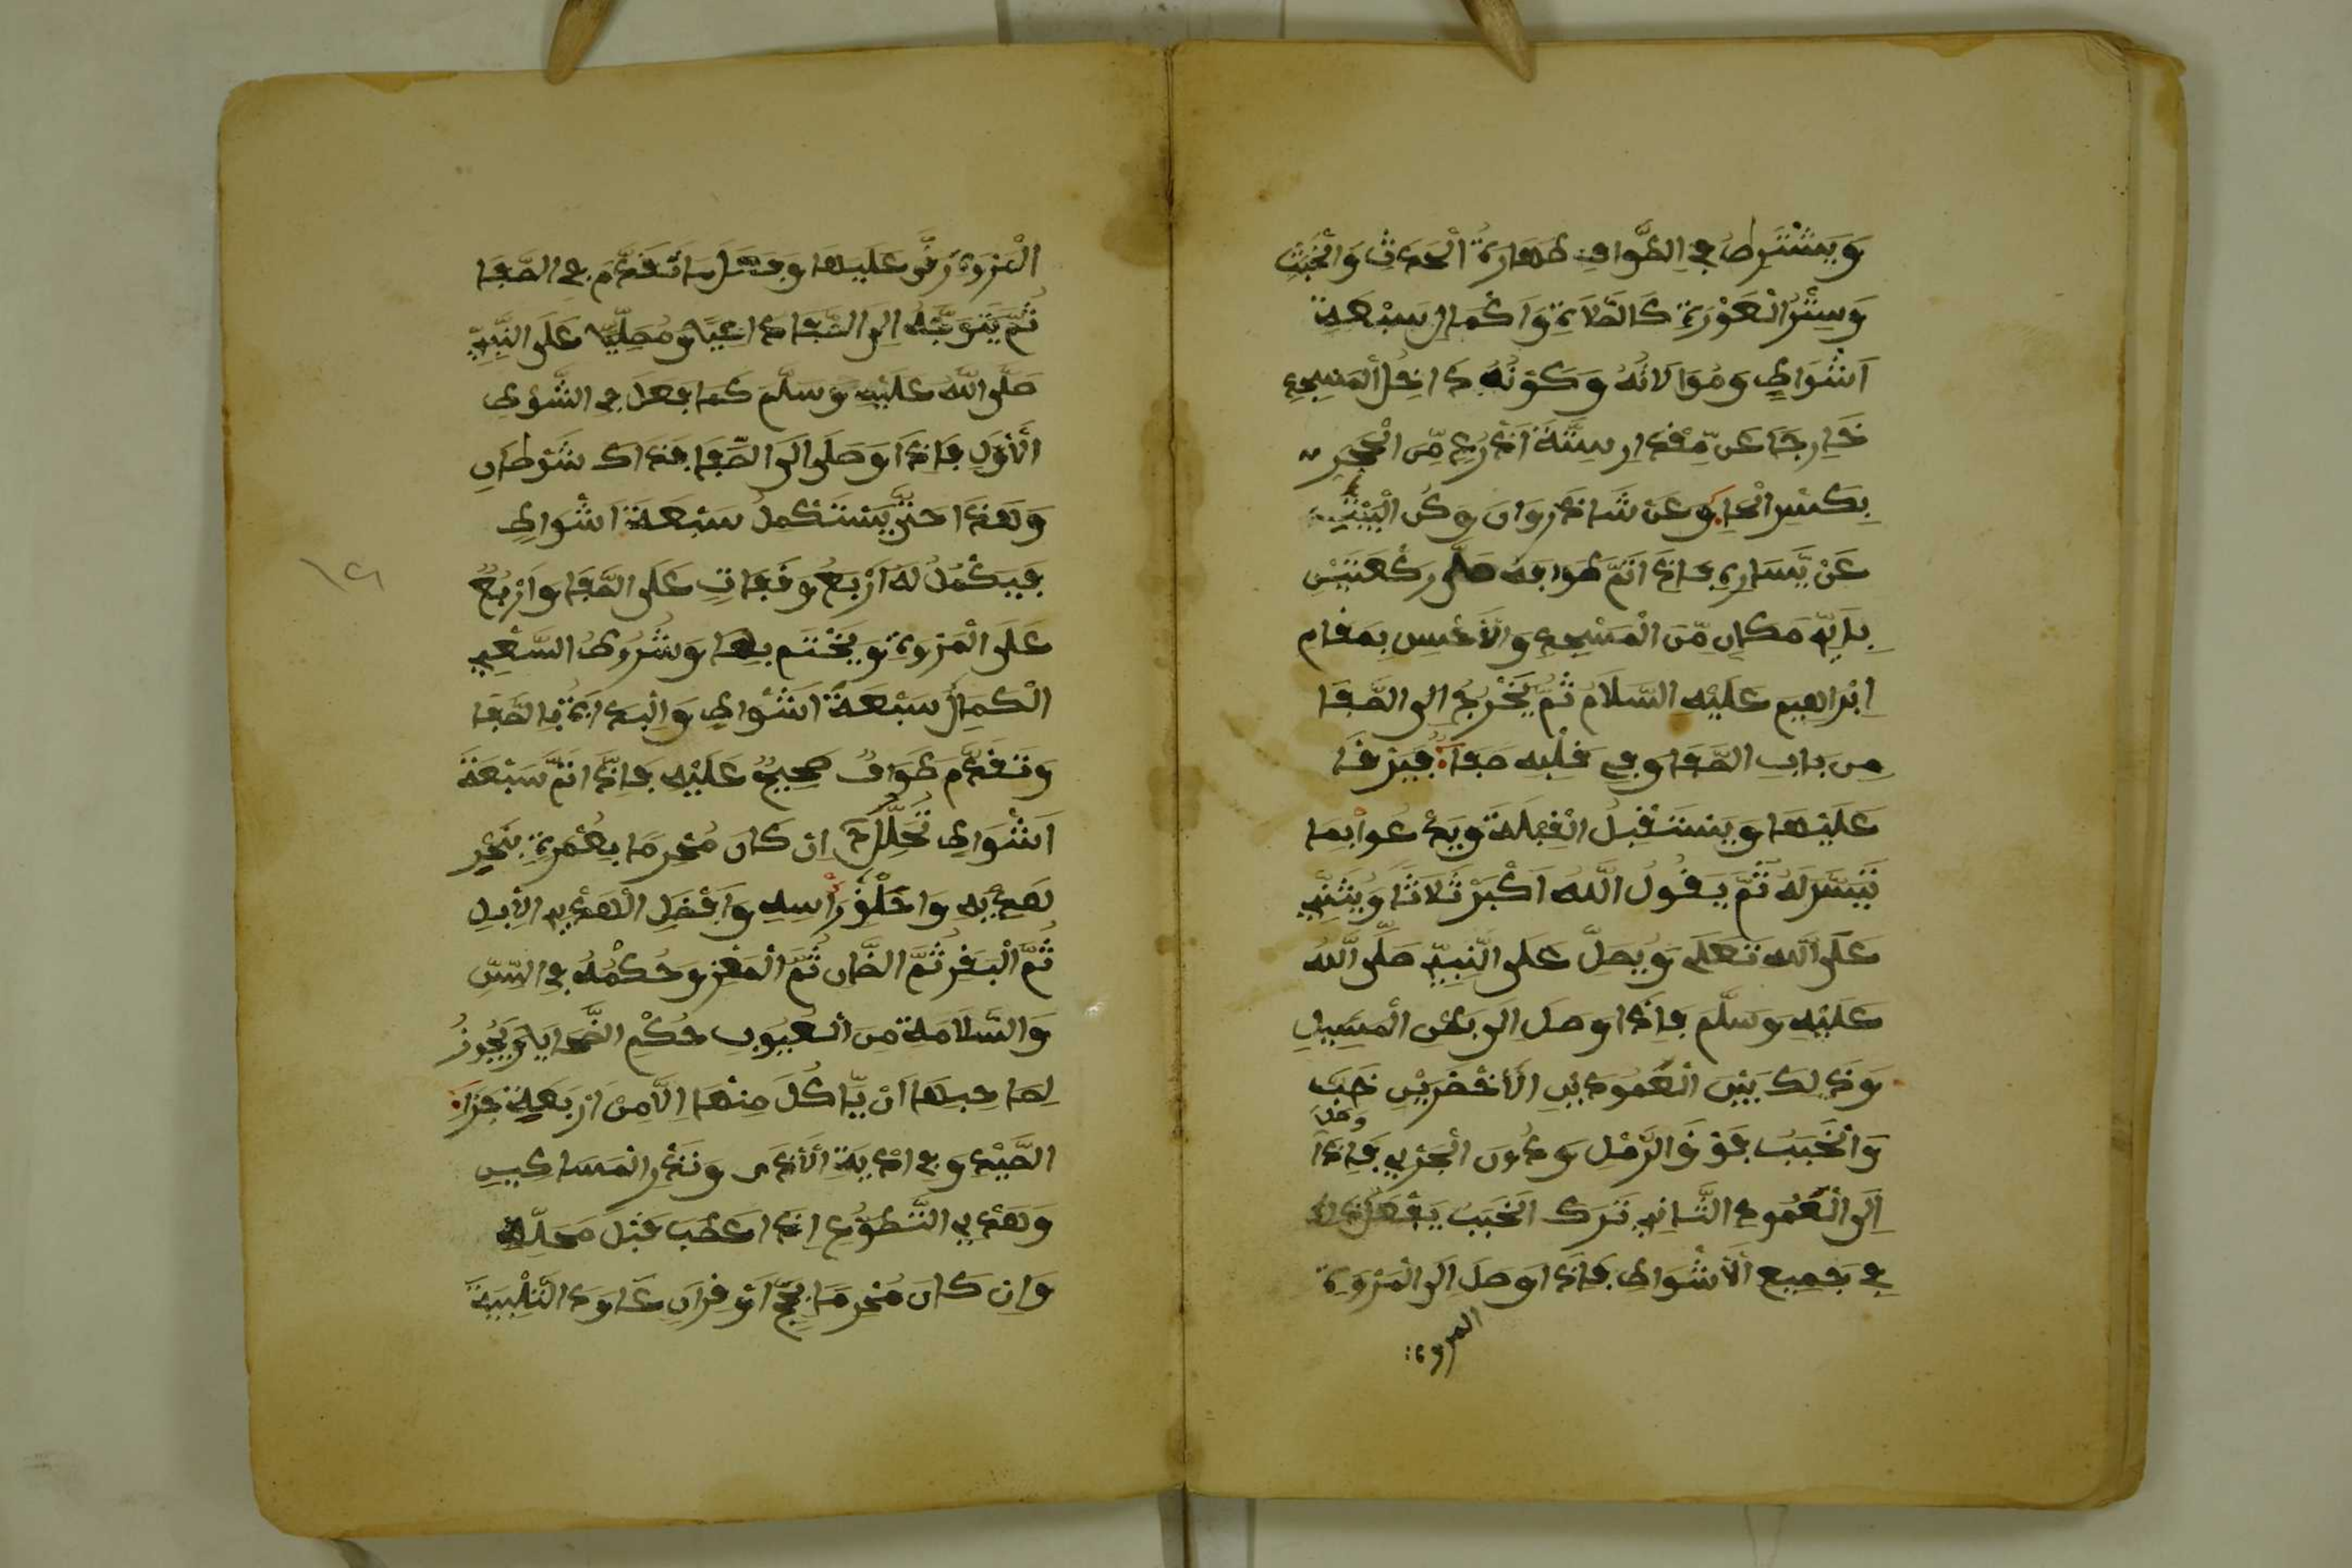 وَيَشْتَرِطُ فِي الطَّوَافِ طَهَارَةُ الْحَدَثِ وَالْخَبَثِ
وَسِتْرُ الْعَوْرَةِ كَالصَّلَاةِ وَاَكْمَالِ سَبْعَةِ
اَشْوَاطٍ وَمُوَالَاتُهُ وَكَوْنُهُ دَاخِلَ الْمَسْجِدِ
خَارِجًا عَنْ مِّقْدَارِ سِتَّةَ اَذْرُعٍ مِّنَ الْحِجْرِ
بِكَسْرِ الْحَاءِ وَعَنْ شَاذَرْوَانَ وَكَنِ الْبَيْتِ
عَنْ يَّسَارِهِ فَاِذَا اَتَمَّ طَوَافَهُ صَلَّى رَكْعَتَيْنِ
بِاَيِّ مَكَانٍ مِّنَ الْمَسْجِدِ وَالْاَحْسَنِ بِمَقَامِ
اِبْرَاهِيمَ عَلَيْهِ السَّلَامُ ثُمَّ يَخْرُجُ اِلَى الصَّفَا
مِنْ بَابِ الصَّفَا وَفِي قَلْبِهِ صَفَاءٌ فَيَرْقَا
عَلَيْهَا وَيَسْتَقْبِلُ الْقِبْلَةَ وَيَدْعُوا بِمَا
تَيَسَّرَ لَهُ ثُمَّ يَقُولُ اللَّهُ اَكْبَرْ ثَلَاثًا وَيُثْنِي
عَلَى اللَّهِ تَعَلَى وَيُصَلِّ عَلَى النَّبِيِّ صَلَّى اللَّهُ
عَلَيْهِ وَسَلَّمَ فَاِذَا وَصَلَ اِلَى بَطْنِ الْمَسِيلِ
وَذَلِكَ بَيْنَ الْعَمُودَيْنِ الْاَخْضَرَيْنِ خَبَّ
وَالْخَبَبُ فَوْقَ الرَّمْلِ وَدُونَ الْجَرْيِ فَاِذَا وَصَلَ
اِلَى الْعَمُودِ الثَّانِي تَرَكَ الْخَبَبَ يَفْعَلُ ذَلِكَ
فِي جَمِيعِ الْاَشْوَاطِ فَاِذَا وَصَلَ اِلَى الْمَرْوَةِ
المروة
الْمَرْوَةَ رَقَى عَلَيْهَا وَفَعَلَ مَا تَقَدَّمَ فِي الصَّفَا
ثُمَّ يَتَوَجَّهُ اِلَى الصَّفَا دَاعِيًا وَمُصَلِّيًا عَلَى النَّبِيِّ
صَلَّى اللَّهُ عَلَيْهِ وَسَلَّمَ كَمَا فَعَلَ فِي الشَّوْطِ
الْاَوَّلِ فَاِذَا وَصَلَ اِلَى الصَّفَا فَذَاكَ شَوْطَانِ
وَهَكَذَا حَتَّى يَسْتَكْمِلَ سَبْعَةَ اَشْوَاطٍ
فَيَكْمُلُ لَهُ اَرْبَعُ وَقَفَاتٍ عَلَى الصَّفَا وَاَرْبَعٌ
عَلَى الْمَرْوَةِ وَيَخْتَم بِهَا وَشُرُوطُ السَّعْيِ
الْكَمَالُ سَبْعَةُ اَشْوَاطٍ وَالْبَدَايَةُ بِالصَّفَا
وَتَقَدُّمَ طَوَافٍ صَحِيحٌ عَلَيْهِ فَاِذَا اَتَمَّ سَبْعَةَ
اَشْوَاطٍ تَحَلَّلَ اِنْ كَانَ مُحْرِمًا بِعُمْرَةٍ بِنَحْرِ
هَدْيِهِ وَاحْلِقْ رَأْسِهِ وَاَفْضَلِ الْهَدْيِ الْاِبِلِ
ثُمَّ الْبَقَرُ ثُمَّ الضَّانِ ثُمَّ الْمَعْزِ وَحُكْمُهُ فِي السِّنِّ
وَالسَّلَامَةِ مِنَ الْعُيُوبِ حُكْمِ الضَّحَايَا وَيَجُوزُ
لِصَاحِبِهَا اَنْ يَّاكُلَ مِنْهَا اِلَّا مِنْ اَرْبَعَةٍ جَزَاءُ
الصَّيْدِ وَفِدْيَةِ الْاَذَى وَنَذْرِ الْمَسَاكِينِ
وَهَدْيِ التَّطَوُّعِ اِذَا عَطَبَ قَبْلَ مَحَلِّهِ
وَاِنْ كَانَ مُحْرِمًا بِحَجٍّ اَوْ قِرَانٍ عَاوَدَ التَّلْبِيَةَ